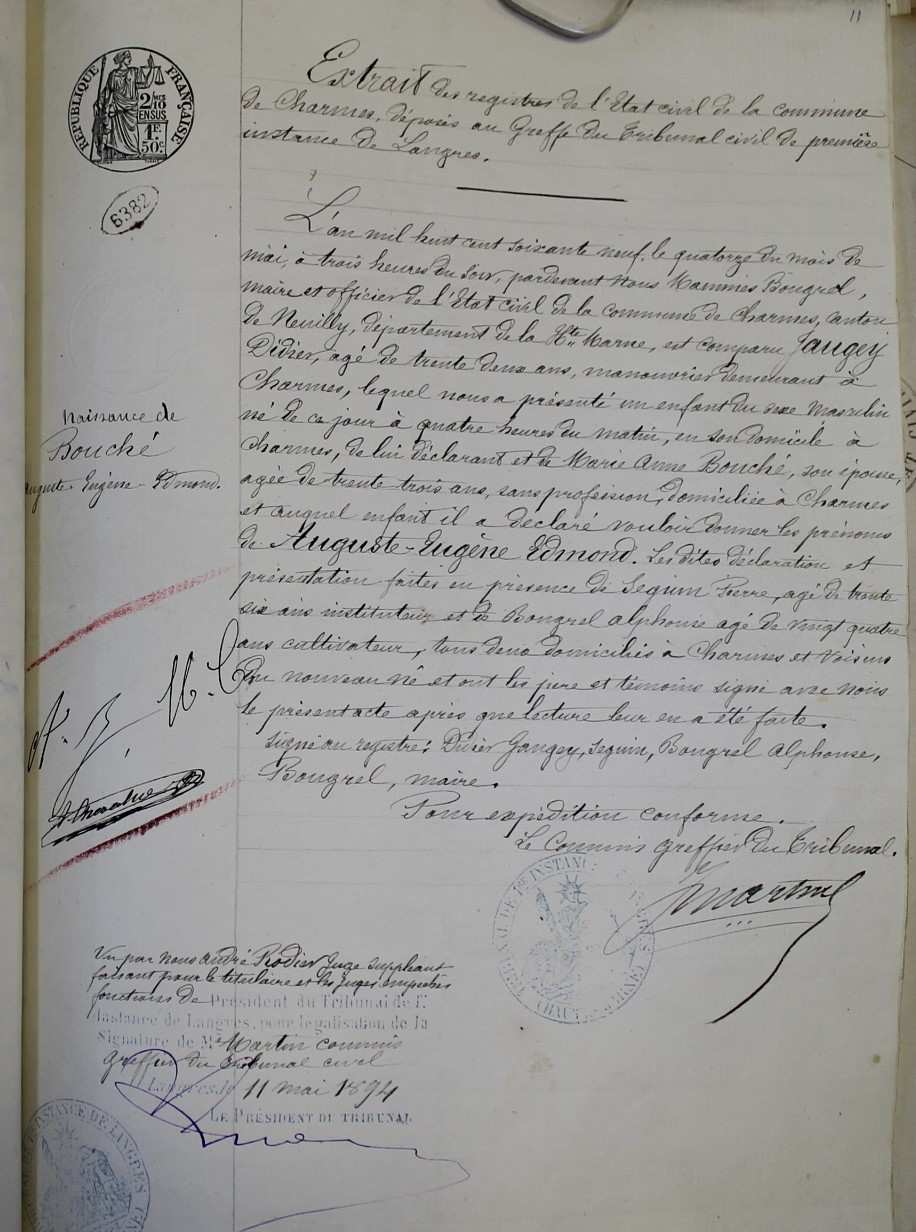 11
RÉPUBLIQUE FRANÇAISE
2/10 EN SUS
1F.
50c.
6382
Extrait des registres de l'Etat civil de la commune
de Charmes, déposés au Greffe du Tribunal civil de première
instance de Langres.
L'an mil huit cent soixante neuf, le quatorze du mois de
mai, à trois heures du soir, pardevant Nous Mammès Bougrel,
maire et officier de l'Etat civil de la commune de Charmes, canton
de Neuilly, département de la Hte Marne, est comparu Jaugey
Didier, agé de trente deux ans, manouvrier demeurant à
Charmes, lequel nous a présenté un enfant du sexe Masculin
né de ce jour à quatre heures du matin, en son domicile à
Charmes, de lui déclarant et de Marie Anne Bouché, son épouse,
agée de trente trois ans, sans profession, domiciliée à Charmes
et auquel enfant il a déclaré vouloir donner les prénoms
de Auguste-Eugène Edmond. Les dites déclaration et
présentation faites en présence de Seguin Pierre, agé de trente
six ans instituteur et de Bougrel alphonse agé de vingt quatre
ans cultivateur, tous deux domiciliés à Charmes et voisins
Du nouveau né et ont les père et témoins signé avec nous
le présent acte après que lecture leur en a été faite.
Signé au registre: Didier Jaugey, Seguin, Bougrel alphonse,
Bougrel, maire.
Pour expédition conforme.
Le Commis greffier du Tribunal.
Martin
naissance de
Bouché
Auguste-Eugène-Edmond.
TRIBUNAL DE 1RE INSTANCE DE LANGRES
(HAUTE-MARNE)
Vu par nous André Rodier Juge suppléant
faisant pour le titulaire et les juges empêchés
fonctions de Président du Tribunal de 1re
Instance de Langres, pour légalisation de la
Signature de Me Martin commis
greffier du tribunal civil
Langres, le 11 mai 1894
LE PRÉSIDENT DU TRIBUNAL
INSTANCE DE LANGRES